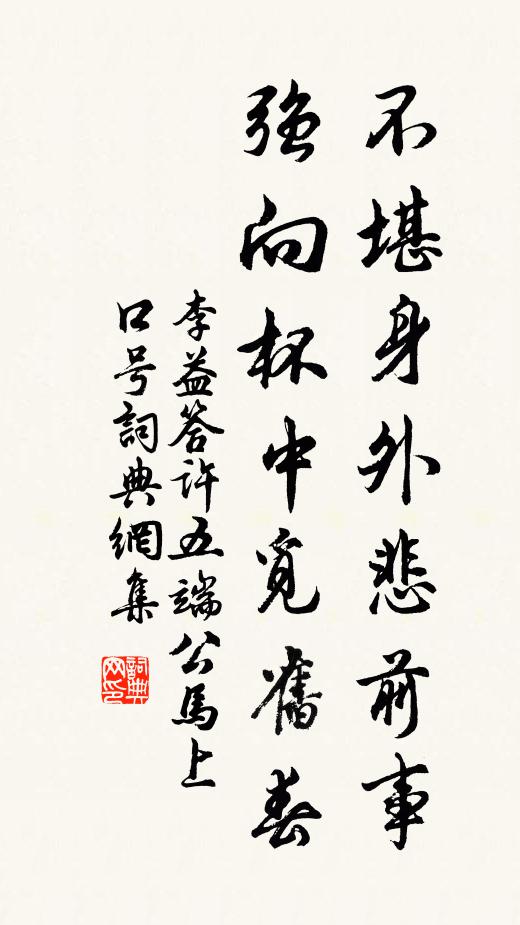 不堪身外悲前事
強向杯中覓舊春
李益答许五端公馬上
口号詞典網集
詞典网印